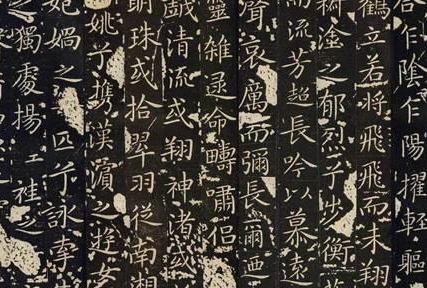 合乍陰乍陽擢輕軀
鶴立若將飛飛而未翔
椒塗之郁烈兮步衡薄
而流芳超長吟以慕遠
聲哀厲而彌長爾迺
靈雜遝命疇嘯侶
戲清流或翔神渚或
明珠或拾翠羽從南湘
姚兮攜漢濱之遊女
媧之匹兮詠牽
之獨處楊袿之